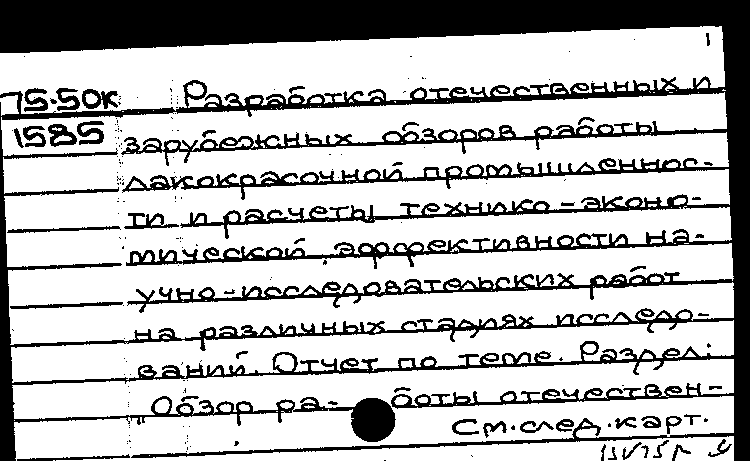 1
75.50к Разработка отечественных и
1585 зарубежных обзоров работы
лакокрасочной промышленнос-
ти и расчеты технико-эконо-
мической эффективности на-
учно-исследовательских работ
на различных стадиях исследо-
ваний. Отчет по теме. Раздел:
"Обзор ра- боты отечествен-
См.след.карт.